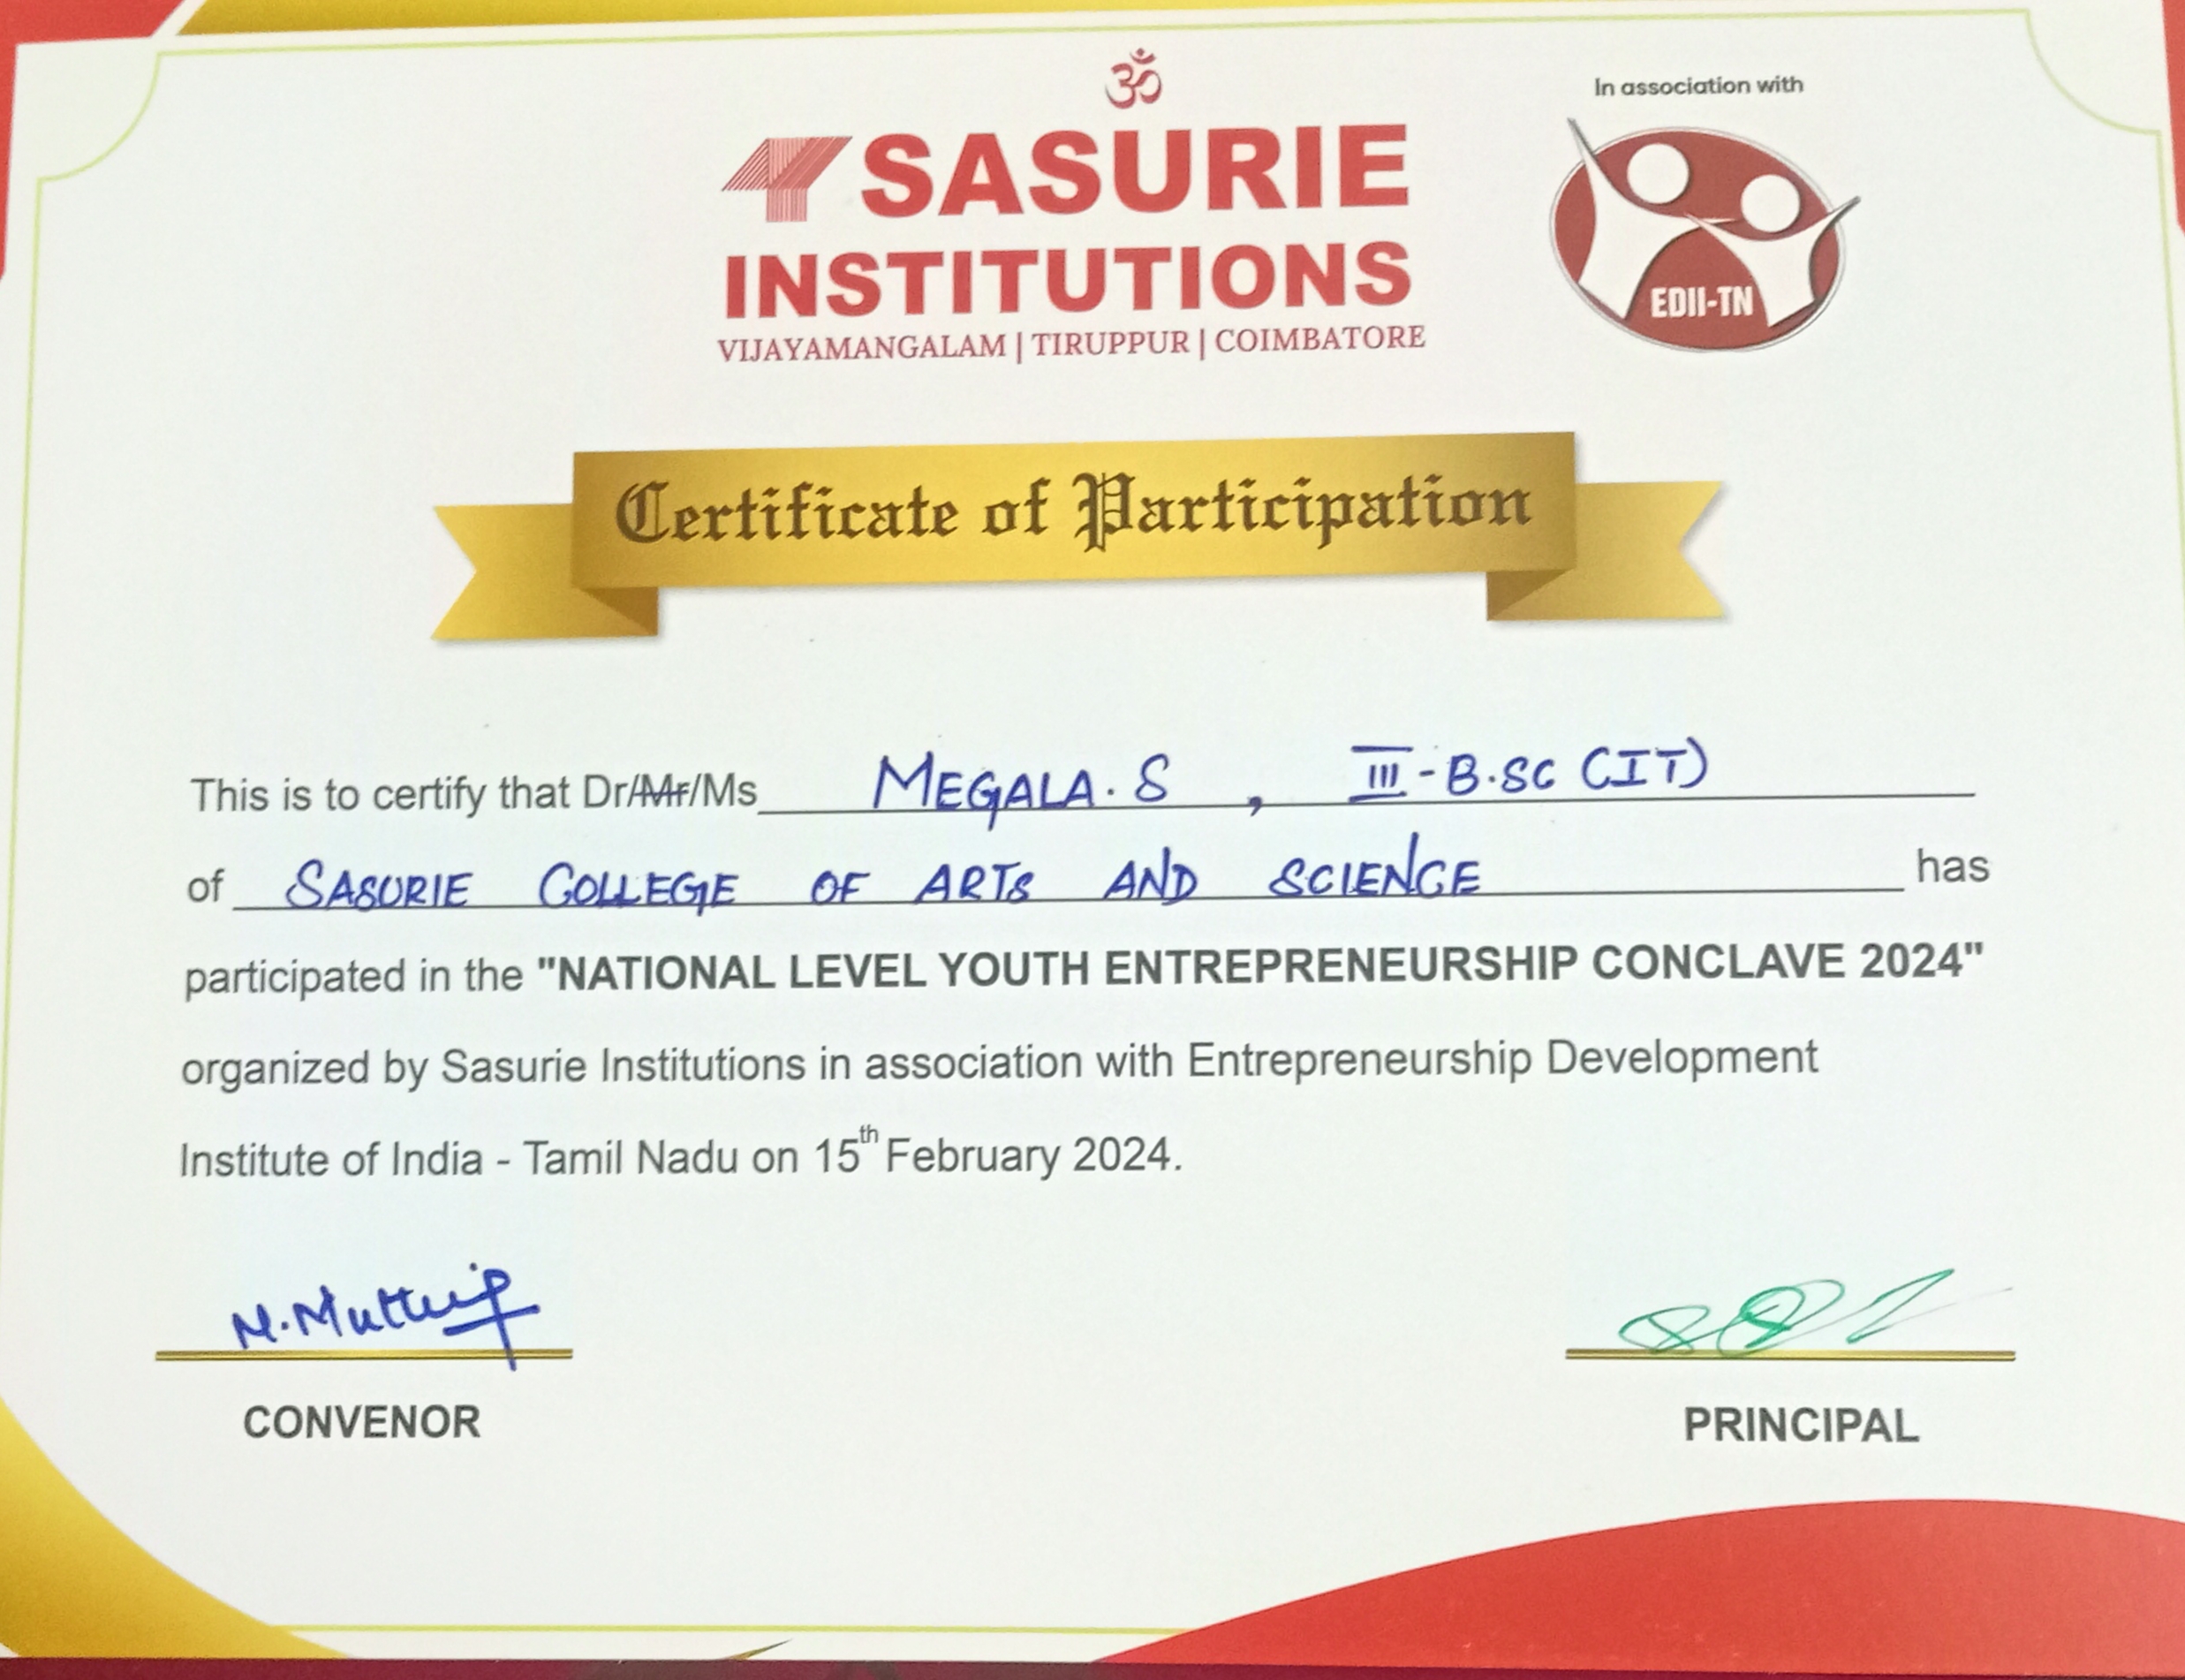 ॐ
SASURIE
INSTITUTIONS
VIJAYAMANGALAM | TIRUPPUR | COIMBATORE
In association with
EDII-TN
Certificate of Participation
This is to certify that Dr/Mr/Ms MEGALA. S , III - B.SC (IT)
of SASURIE COLLEGE OF ARTS AND SCIENCE has
participated in the "NATIONAL LEVEL YOUTH ENTREPRENEURSHIP CONCLAVE 2024"
organized by Sasurie Institutions in association with Entrepreneurship Development
Institute of India - Tamil Nadu on 15th February 2024.
CONVENOR
PRINCIPAL